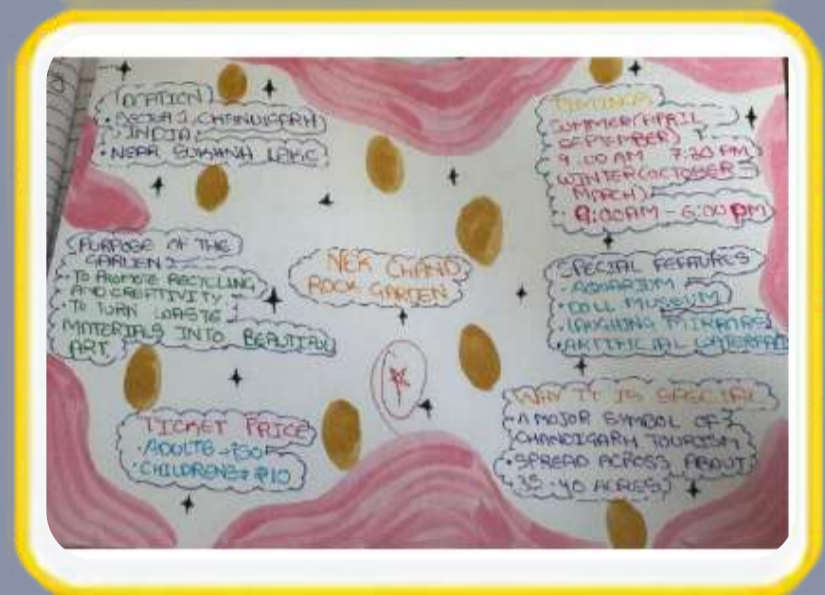 LOCATION
• SECTOR 1, CHANDIGARH
INDIA
• NEAR SUKHNA LAKE
PURPOSE OF THE
GARDEN
• TO PROMOTE RECYCLING
AND CREATIVITY
• TO TURN WASTE
MATERIALS INTO BEAUTIFUL
ART
TICKET PRICE
• ADULTS → ₹30
• CHILDRENS → ₹10
NEK CHAND
ROCK GARDEN
TIMINGS
SUMMER (APRIL
SEPTEMBER)
9:00 AM 7:30 PM
WINTER (OCTOBER
MARCH)
9:00 AM - 6:00 PM
SPECIAL FEATURES
• AQUARIUM
• DOLL MUSEUM
• LAUGHING MIRRORS
• ARTIFICIAL WATERFALL
WHY IT IS SPECIAL
• A MAJOR SYMBOL OF
CHANDIGARH TOURISM
• SPREAD ACROSS ABOUT
35-40 ACRES